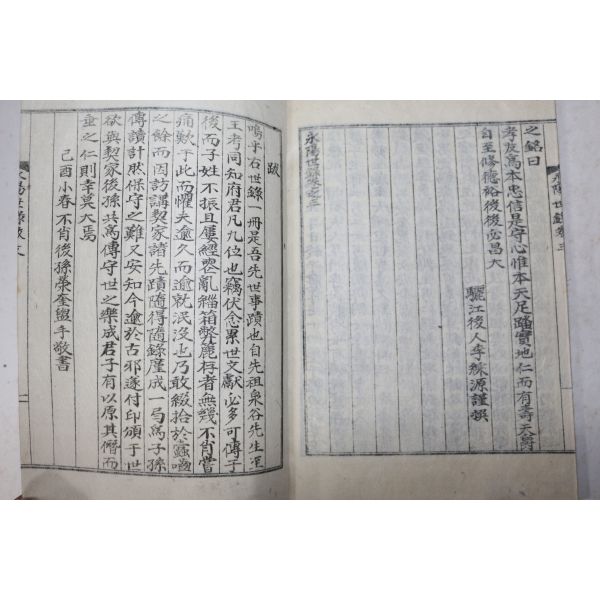 之銘曰
孝友爲本忠信是守心惟本天足踏實地仁而有壽天爵
自至修德裕後後必昌大
驪江後人李 源謹撰
永陽世錄卷之三
永陽世錄卷三
跋
嗚乎右世錄一冊是吾先世事蹟也自先祖泉谷先生
王考同知府君凡九位也竊伏念累世文獻必多可傳子
後而子姓不振且屢經 亂 箱弊麓存者無幾不肖嘗
痛歎于此而懼夫逾久而逾就泯沒也乃敢綴拾於蠹
之餘而因訪講契家諸先蹟隨得隨錄廑成一局爲子孫
傳讀計然保守之難又安知今逾於古邪遂付印頒于世
欲與契家後孫共爲傳守世之樂成君子有以原其僭而
垂之仁則幸莫大焉
己酉小春不肖後孫 奎 手敬書
永陽世錄跋文